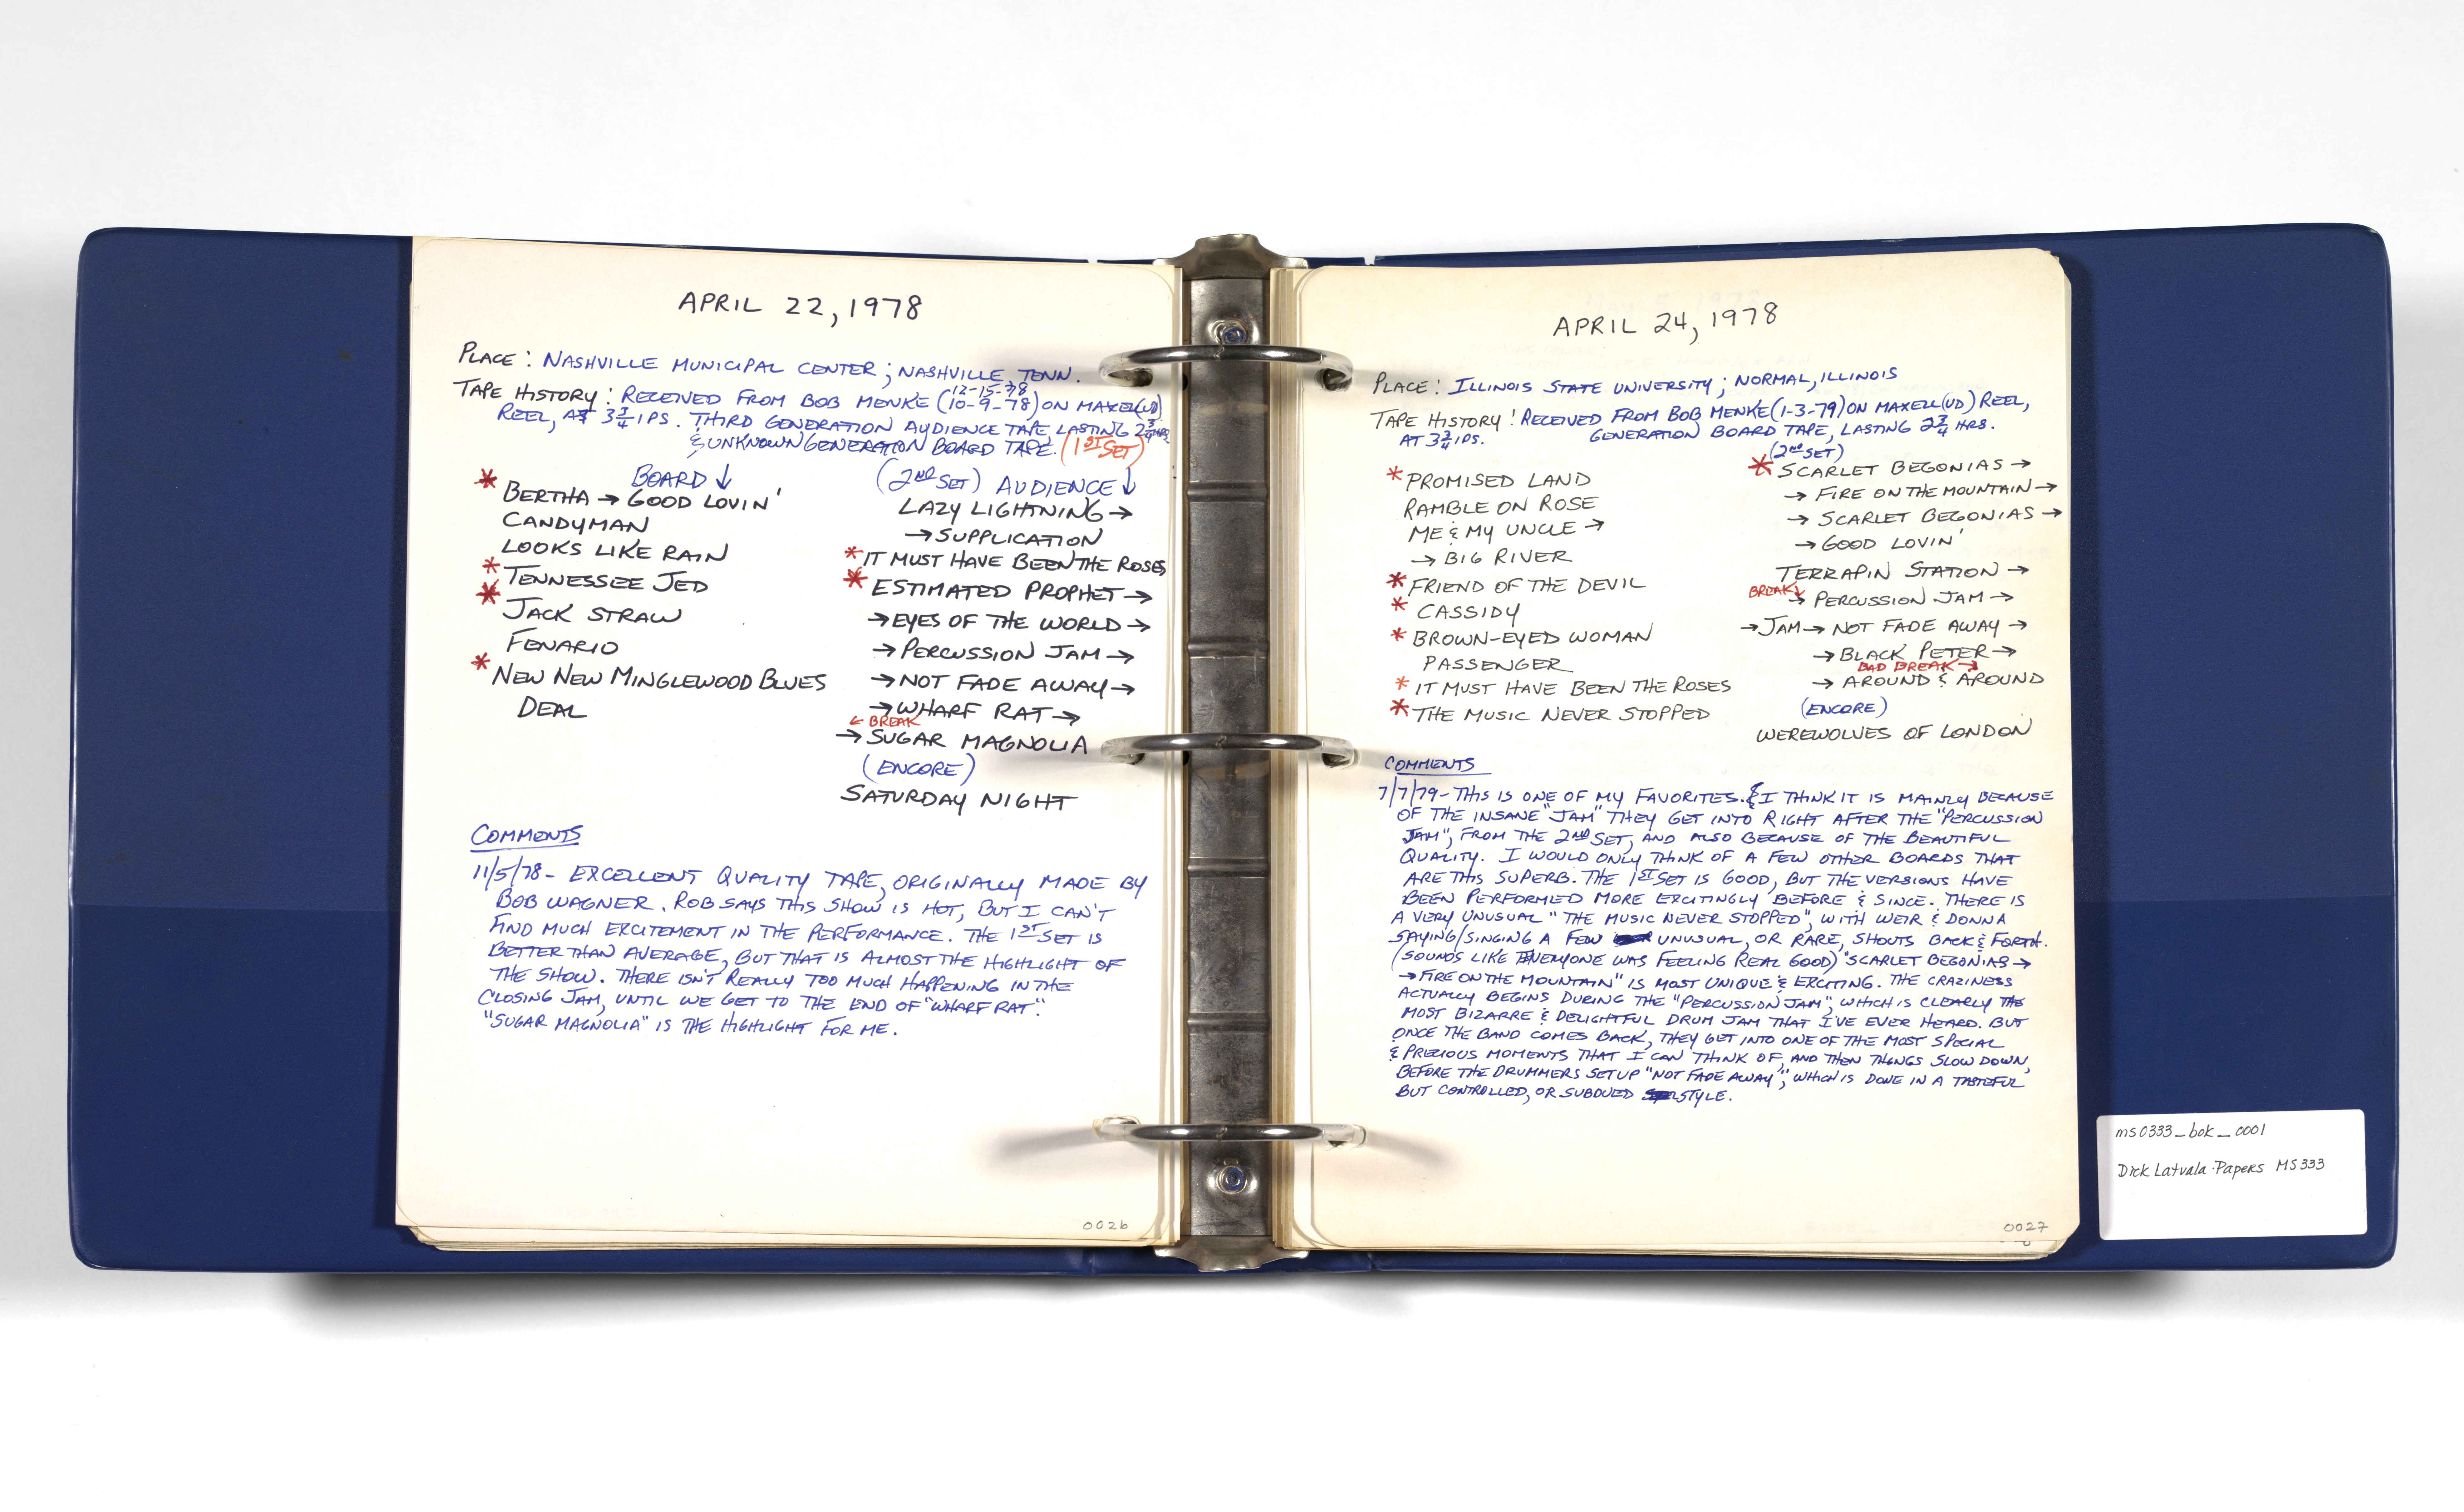 APRIL 22, 1978
PLACE: NASHVILLE MUNICIPAL CENTER; NASHVILLE, TENN.
12-15-78
TAPE HISTORY: RECEIVED FROM BOB MENKE (10-9-78) ON MAXELL(UD)
REEL, AT 3 3/4 IPS. THIRD GENERATION AUDIENCE TAPE, LASTING 2 3/4 HRS.
& UNKNOWN GENERATION BOARD TAPE. (1ST SET)
BOARD ↓
* BERTHA → GOOD LOVIN'
CANDYMAN
LOOKS LIKE RAIN
* TENNESSEE JED
* JACK STRAW
FENARIO
* NEW NEW MINGLEWOOD BLUES
DEAL
(2ND SET) AUDIENCE ↓
LAZY LIGHTNING →
→ SUPPLICATION
* IT MUST HAVE BEEN THE ROSES
* ESTIMATED PROPHET →
→ EYES OF THE WORLD →
→ PERCUSSION JAM →
→ NOT FADE AWAY →
→ WHARF RAT →
← BREAK
→ SUGAR MAGNOLIA
(ENCORE)
SATURDAY NIGHT
COMMENTS
11/5/78 - EXCELLENT QUALITY TAPE, ORIGINALLY MADE BY
BOB WAGNER. ROB SAYS THIS SHOW IS HOT, BUT I CAN'T
FIND MUCH EXCITEMENT IN THE PERFORMANCE. THE 1ST SET IS
BETTER THAN AVERAGE, BUT THAT IS ALMOST THE HIGHLIGHT OF
THE SHOW. THERE ISN'T REALLY TOO MUCH HAPPENING IN THE
CLOSING JAM, UNTIL WE GET TO THE END OF "WHARF RAT".
"SUGAR MAGNOLIA" IS THE HIGHLIGHT FOR ME.
0026
APRIL 24, 1978
PLACE: ILLINOIS STATE UNIVERSITY; NORMAL, ILLINOIS
TAPE HISTORY: RECEIVED FROM BOB MENKE (1-3-79) ON MAXELL (UD) REEL,
AT 3 3/4 IPS. GENERATION BOARD TAPE, LASTING 2 3/4 HRS.
* PROMISED LAND
RAMBLE ON ROSE
ME & MY UNCLE →
→ BIG RIVER
* FRIEND OF THE DEVIL
* CASSIDY
* BROWN-EYED WOMAN
PASSENGER
* IT MUST HAVE BEEN THE ROSES
* THE MUSIC NEVER STOPPED
(2ND SET)
* SCARLET BEGONIAS →
→ FIRE ON THE MOUNTAIN →
→ SCARLET BEGONIAS →
→ GOOD LOVIN'
TERRAPIN STATION →
BREAK ↓
→ PERCUSSION JAM →
→ JAM → NOT FADE AWAY →
→ BLACK PETER →
BAD BREAK →
→ AROUND & AROUND
(ENCORE)
WEREWOLVES OF LONDON
COMMENTS
7/7/79 - THIS IS ONE OF MY FAVORITES. & I THINK IT IS MAINLY BECAUSE
OF THE INSANE "JAM" THEY GET INTO RIGHT AFTER THE "PERCUSSION
JAM", FROM THE 2ND SET, AND ALSO BECAUSE OF THE BEAUTIFUL
QUALITY. I WOULD ONLY THINK OF A FEW OTHER BOARDS THAT
ARE THIS SUPERB. THE 1ST SET IS GOOD, BUT THE VERSIONS HAVE
BEEN PERFORMED MORE EXCITINGLY BEFORE & SINCE. THERE IS
A VERY UNUSUAL "THE MUSIC NEVER STOPPED", WITH WEIR & DONNA
SAYING/SINGING A FEW UNUSUAL, OR RARE, SHOUTS BACK & FORTH.
(SOUNDS LIKE EVERYONE WAS FEELING REAL GOOD) "SCARLET BEGONIAS →
→ FIRE ON THE MOUNTAIN" IS MOST UNIQUE & EXCITING. THE CRAZINESS
ACTUALLY BEGINS DURING THE "PERCUSSION JAM", WHICH IS CLEARLY THE
MOST BIZARRE & DELIGHTFUL DRUM JAM THAT I'VE EVER HEARD. BUT
ONCE THE BAND COMES BACK, THEY GET INTO ONE OF THE MOST SPECIAL
& PRECIOUS MOMENTS THAT I CAN THINK OF, AND THEN THINGS SLOW DOWN,
BEFORE THE DRUMMERS SET UP "NOT FADE AWAY", WHICH IS DONE IN A TASTEFUL
BUT CONTROLLED, OR SUBDUED STYLE.
0027
ms0333_bok_0001
Dick Latvala Papers MS333